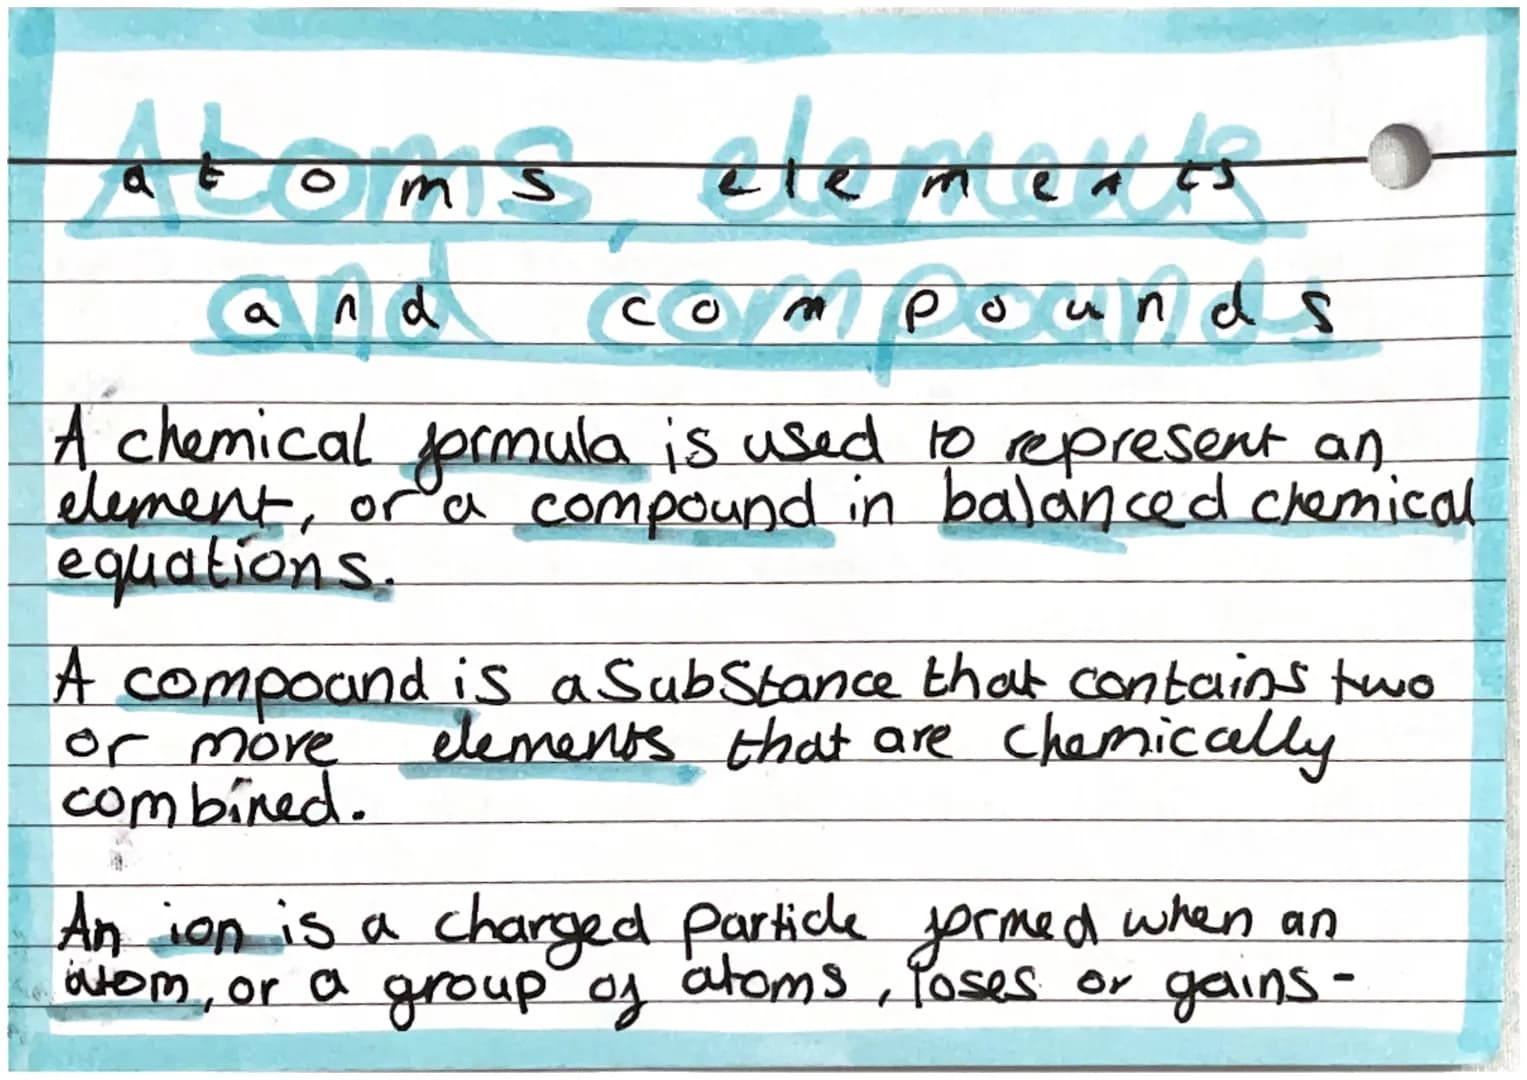 Atoms, elements
atoms elements
and compounds
and compounds
A chemical formula is used to represent an
element, or a compound in balanced chemical
equations.
A compound is a substance that contains two
or more elements that are chemically
combined.
An ion is a charged particle formed when an
atom, or a group of atoms, loses or gains-